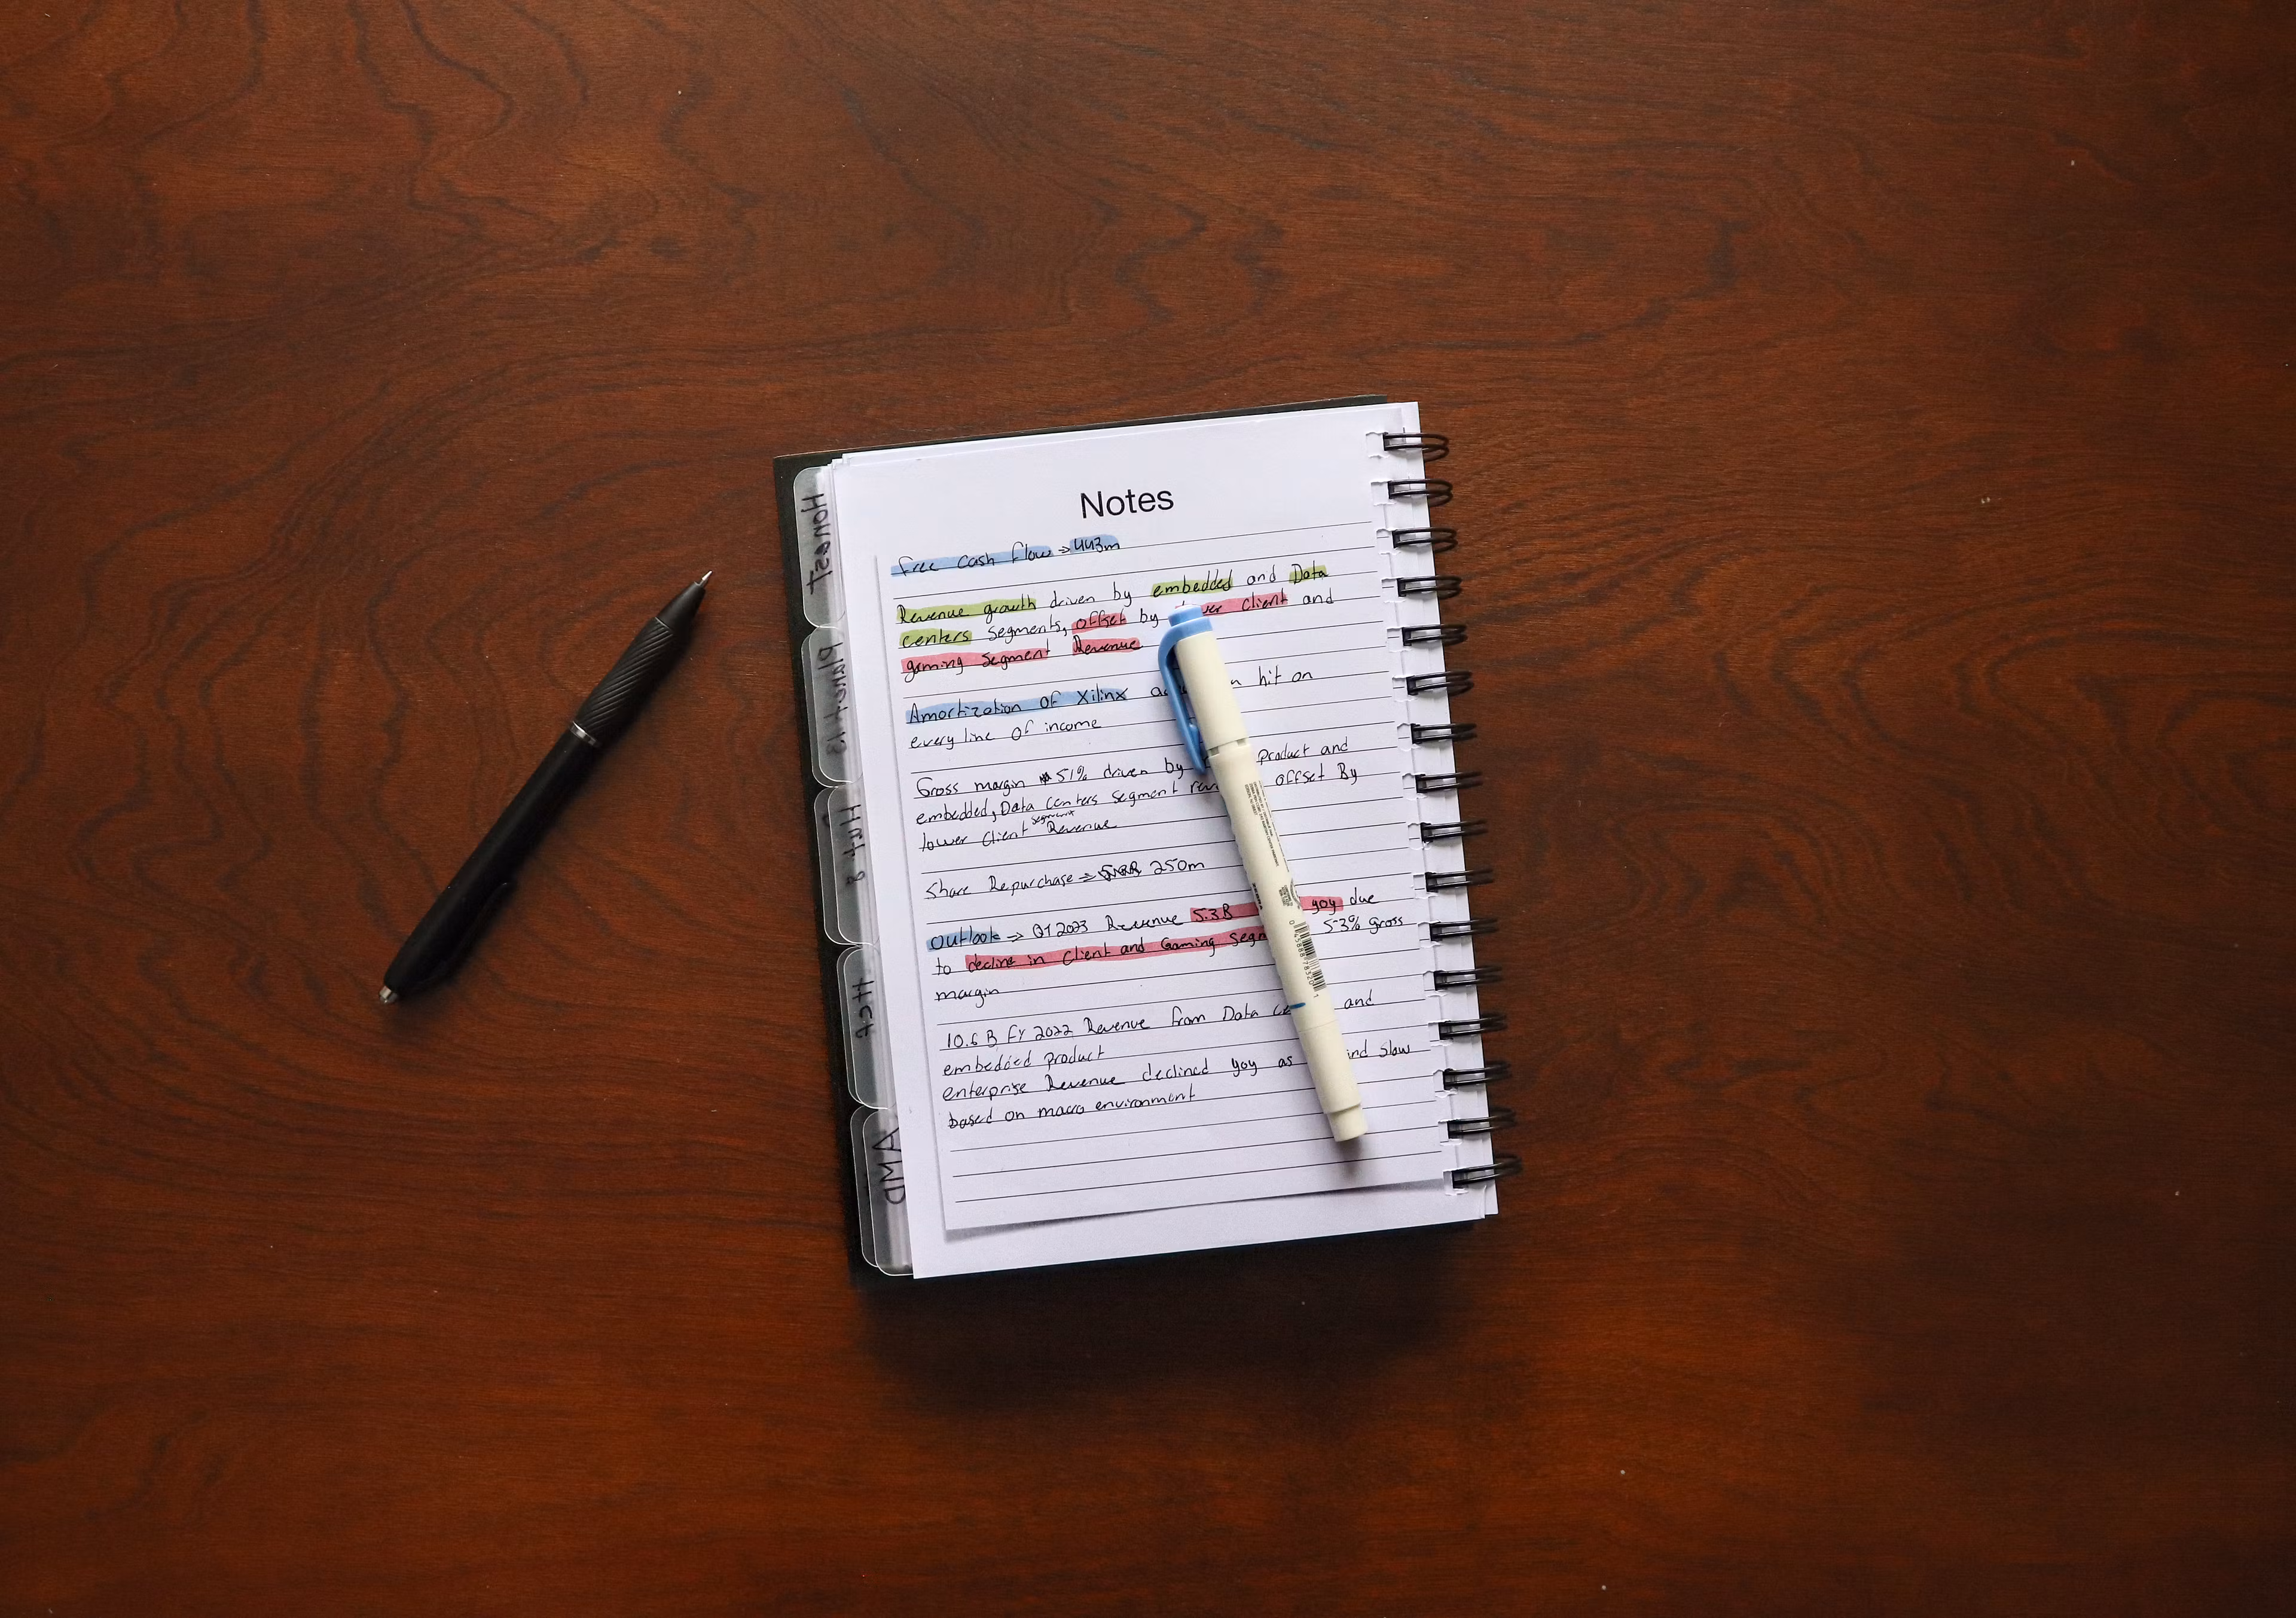 Notes
free cash flow → 443m
Revenue growth driven by embedded and Data
centers segments, offset by client and
gaming segment Revenue
Amortization of Xilinx hit on
every line of income
Gross margin 51% driven by product and
embedded, Data centers segment offset By
lower client segment Revenue
Share Repurchase ⇒ 250m
Outlook ⇒ Q1 2023 Revenue 5.3B yoy due
to decline in Client and Gaming 53% gross
margin
10.6 B FY 2022 Revenue from Data and
embedded product
enterprise Revenue declined yoy as slow
based on macro environment
Honest
Planet 13
Hut 8
AMD